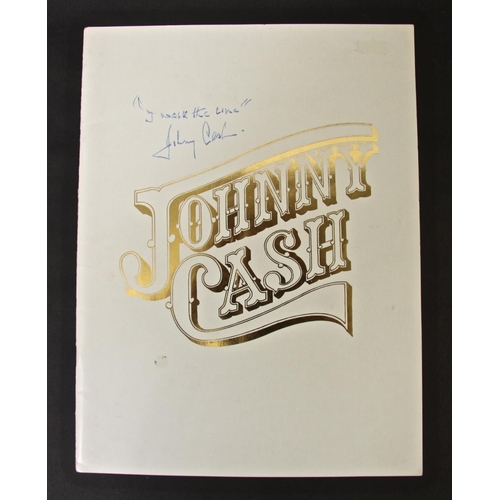 "I walk the line"
Johnny Cash.
JOHNNY
CASH